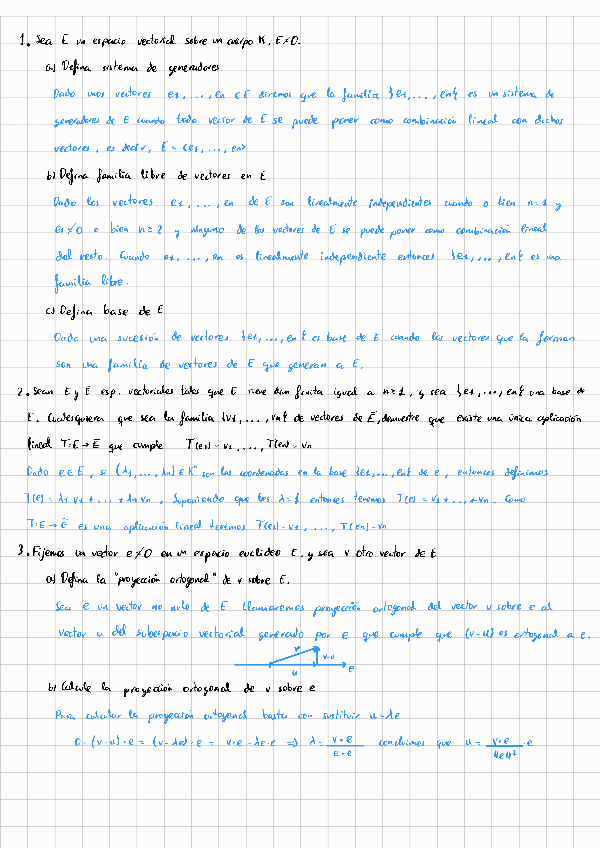 1. Sea E un espacio vectorial sobre un cuerpo K, E≠0.
a) Defina sistema de generadores
Dado unos vectores e1, ..., en ∈ E diremos que la familia {e1, ..., en} es un sistema de
generadores de E cuando todo vector de E se puede poner como combinación lineal con dichos
vectores, es decir, E = <e1, ..., en>
b) Defina familia libre de vectores en E
Dado los vectores e1, ..., en de E son linealmente independientes cuando o bien n=1 y
e1≠0 o bien n≥2 y ninguno de los vectores de E se puede poner como combinación lineal
del resto. Cuando e1, ..., en es linealmente independiente entonces {e1, ..., en} es una
familia libre.
c) Defina base de E
Dado una sucesión de vectores {e1, ..., en} es base de E cuando los vectores que la forman
son una familia de vectores de E que generan a E.
2. Sean E y Ē esp. vectoriales tales que E tiene dim finita igual a n≥1, y sea {e1, ..., en} una base de
E. Cualesquiera que sea la familia {v1, ..., vn} de vectores de Ē, demuestre que existe una única aplicación
lineal T: E → Ē que cumple T(e1) = v1, ..., T(en) = vn
Dado e ∈ E, si (λ1, ..., λn) ∈ Kⁿ son las coordenadas en la base {e1, ..., en} de e, entonces definimos
T(e) = λ1 v1 + ... + λn vn. Suponiendo que los λ = 1 entonces tenemos T(e) = v1 + ... + vn. Como
T: E → Ē es una aplicación lineal tenemos T(e1) = v1, ..., T(en) = vn
3. Fijemos un vector e≠0 en un espacio euclídeo E, y sea v otro vector de E
a) Defina la "proyección ortogonal" de v sobre E.
Sea e un vector no nulo de E llamaremos proyección ortogonal del vector v sobre e al
vector u del subespacio vectorial generado por e que cumple que (v-u) es ortogonal a e.
v
v-u
u
e
b) Calcule la proyección ortogonal de v sobre e
Para calcular la proyección ortogonal basta con sustituir u = λe
0 = (v-u)·e = (v-λe)·e = v·e - λe·e ⇒ λ = v·e / e·e concluimos que u = v·e / ||e||² · e